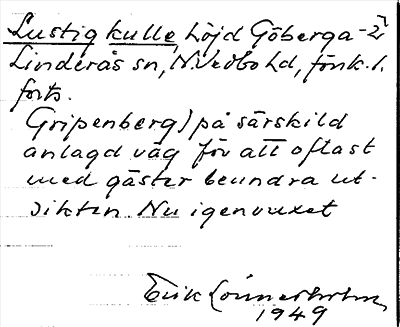 Lustig kulle, höjd Göberga - 2)
Linderås sn, N. Vedbo hd, Jönk. l.
forts.
Gripenberg) på särskild
anlagd väg för att oftast
med gäster beundra ut-
sikten Nu igenvuxet
Erik Lönnerholm
1949